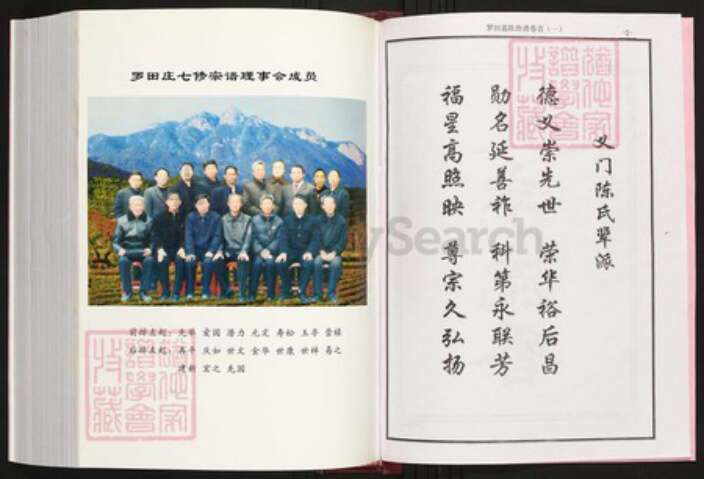 罗田庄七修宗谱理事会成员
前排左起：先华 爱国 潜力 先定 寿松 玉亭 萱禄
后排左起：再平 庆如 世文 金华 世康 世祥 易之
建新 宏之 先国
罗田庄陈氏宗谱卷首（一）
-2-
义门陈氏辈派
德义崇先世 荣华裕后昌
勋名延善祚 科第永联芳
福星高照映 尊宗久弘扬
MySearch